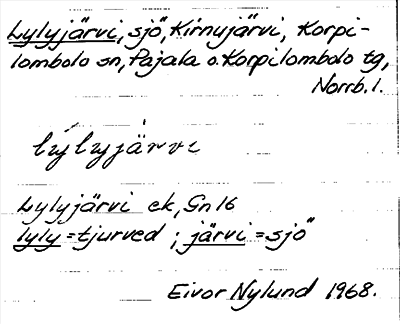 Lylyjärvi, sjö, Kirnujärvi, Korpi-
lombolo sn, Pajala o. Korpilombolo tg,
Norrb. l.
lýlyjä̀rvi
Lylyjärvi ek, Gn 16
lyly = tjurved ; järvi = sjö
Eivor Nylund 1968.